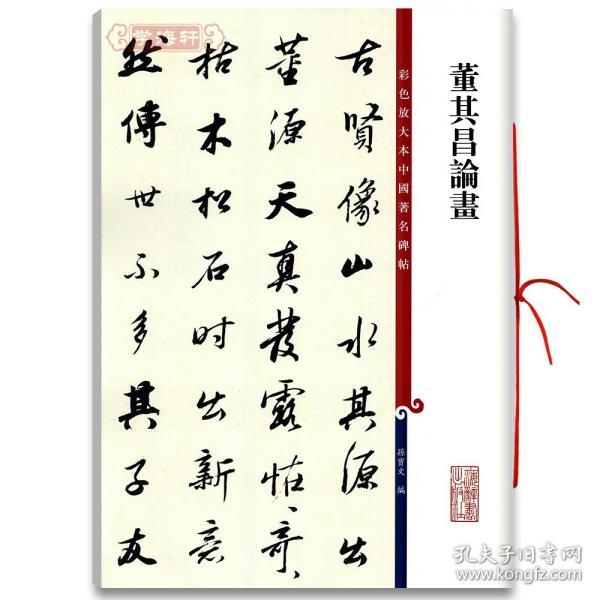 學海轩
董其昌論畫
彩色放大本中國著名碑帖
孫寶文 編
古賢像山水其源出
董源天真發露怪〻奇〻
枯木松石时出新意
然傳世不多其子友
孔夫子旧书网
www.kongfz.com